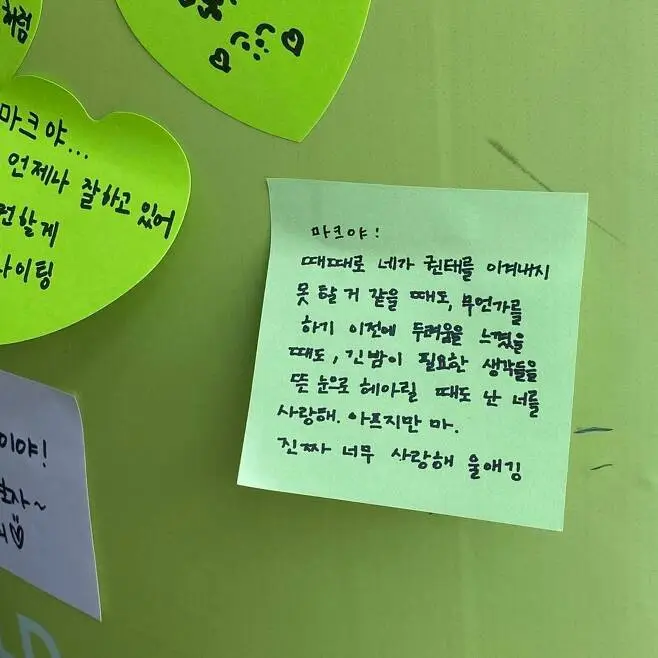 처럼
마크야...
언제나 잘하고 있어
할게
이팅
마크야!
때때로 네가 권태를 이겨내지
못 할 거 같을 때도, 무언가를
하기 이전에 두려움을 느꼈을
때도, 긴밤이 필요한 생각들을
뜬 눈으로 헤아릴 때도 난 너를
사랑해. 아프지만 마.
진짜 너무 사랑해 울애깅
이야!